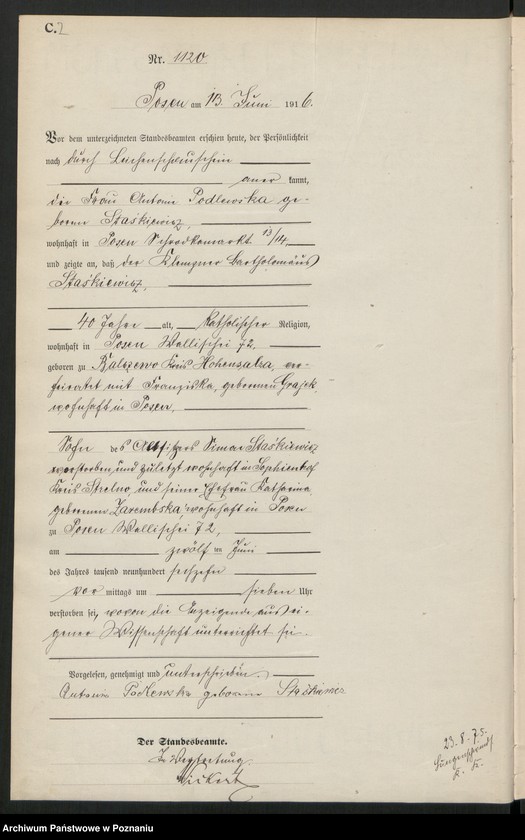 C.
Nr. 1120
Posen am 13. Juni 1916.
Vor dem unterzeichneten Standesbeamten erschien heute, der Persönlichkeit
nach durch Leichenschauschein
aner kannt,
die Frau Antonie Podlewska ge-
borene Staśkiewicz,
wohnhaft in Posen Schrodkamarkt 13/14
und zeigte an, daß der Klempner Bartholomäus
Staśkiewicz,
40 Jahre alt, Katholischer Religion,
wohnhaft in Posen Wallischei 72,
geboren zu Kależewo Kreis Hohensalza, ver-
heiratet mit Franziska, geborenen Grajek
wohnhaft in Posen,
Sohn des Altsitzers Simon Staśkiewicz
verstorben, und zuletzt wohnhaft in Sophienhof
Kreis Strelno, und seiner Ehefrau Katharina,
geborenen Zarembska, wohnhaft in Posen
zu Posen Wallischei 72,
am zwölf ten Juni
des Jahres tausend neunhundert sechzehn
vor mittags um sieben Uhr
verstorben sei, wovon die Anzeigende aus ei-
gener Wissenschaft unterrichtet sei.
Vorgelesen, genehmigt und unterschrieben.
Antonie Podlewska geborene Staśkiewicz
Der Standesbeamte.
In Vertretung
Wickert
23.8.75.
Archiwum Państwowe w Poznaniu